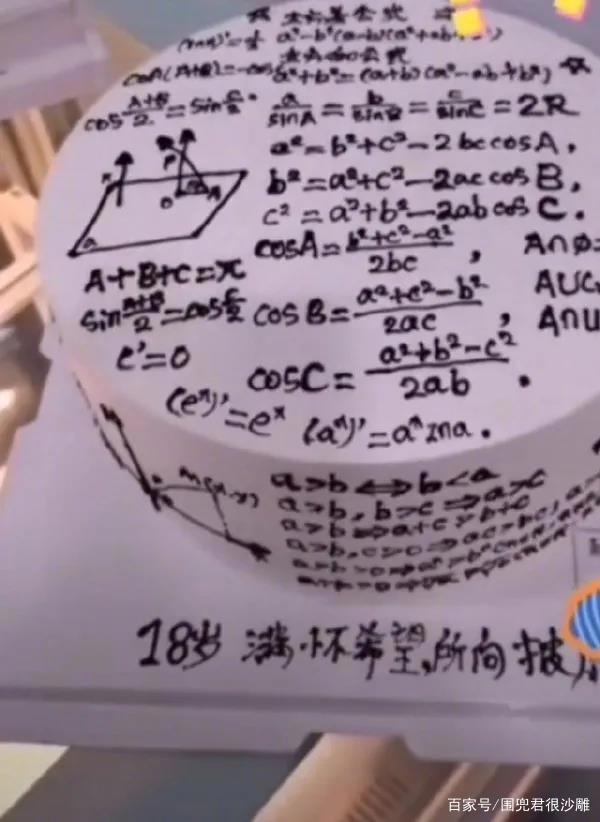 a³-b³=(a-b)(a²+ab+
a³+b³=(a+b)(a²-ab+b²)
cos(A+B)/2=sin C/2
a/sinA=b/sinB=c/sinC=2R
a²=b²+c²-2bccosA,
b²=a²+c²-2accosB,
c²=a²+b²-2abcosC.
cosA=(b²+c²-a²)/2bc,
A∩∅=
A+B+C=π
sin(A+B)/2=cos C/2
cosB=(a²+c²-b²)/2ac,
A∩U
c'=0
cosC=(a²+b²-c²)/2ab.
(eˣ)'=eˣ
(aˣ)'=aˣlna.
a>b⟺b<a
a>b,b>c⟹a>c
a>b⟹a+c>b+c
a>b,c>0⟹ac>bc
M(x,y)
18岁 满怀希望,所向披
百家号/围兜君很沙雕